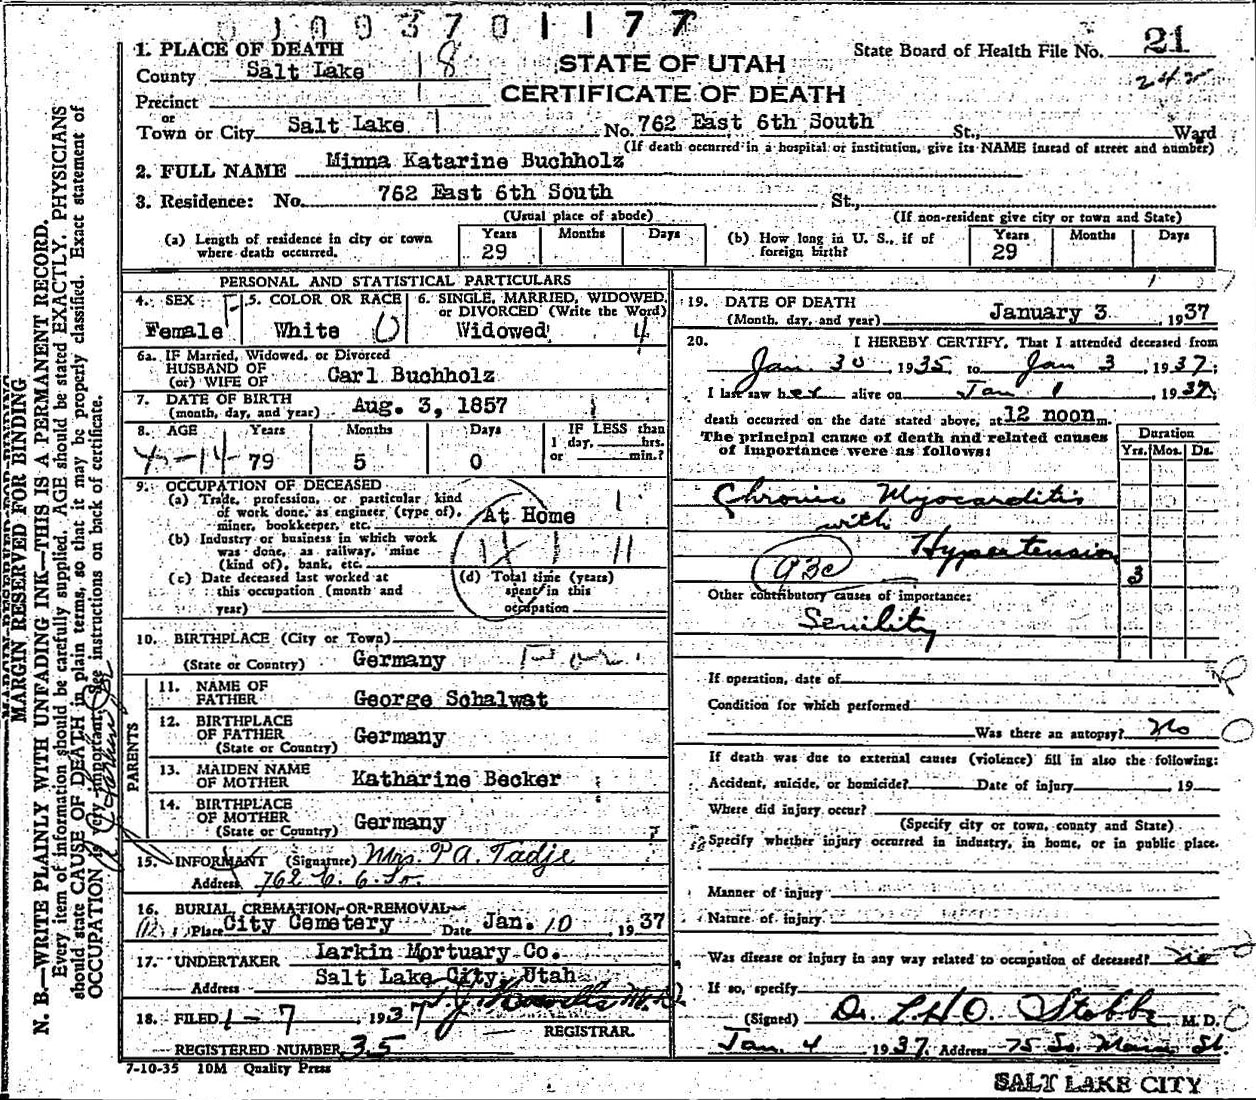 0100370 1177
State Board of Health File No. 21
242
1. PLACE OF DEATH
County Salt Lake 18
STATE OF UTAH
CERTIFICATE OF DEATH
Precinct
or
Town or City Salt Lake 1 No. 762 East 6th South St., Ward
(If death occurred in a hospital or institution, give its NAME instead of street and number)
2. FULL NAME Minna Katarine Buchholz
3. Residence: No. 762 East 6th South St.,
(Usual place of abode) (If non-resident give city or town and State)
(a) Length of residence in city or town where death occurred. Years 29 Months Days
(b) How long in U. S., if of foreign birth? Years 29 Months Days
PERSONAL AND STATISTICAL PARTICULARS
4. SEX Female F
5. COLOR OR RACE White 0
6. SINGLE, MARRIED, WIDOWED, or DIVORCED (Write the Word) Widowed 4
6a. IF Married, Widowed, or Divorced
HUSBAND OF
(or) WIFE OF Carl Buchholz
7. DATE OF BIRTH
(month, day, and year) Aug. 3, 1857
8. AGE Years 79 Months 5 Days 0 IF LESS than 1 day, hrs. or min.?
9. OCCUPATION OF DECEASED
(a) Trade, profession, or particular kind of work done, as engineer (type of), miner, bookkeeper, etc. At Home
(b) Industry or business in which work was done, as railway, mine (kind of), bank, etc.
(c) Date deceased last worked at this occupation (month and year)
(d) Total time (years) spent in this occupation
10. BIRTHPLACE (City or Town)
(State or Country) Germany For.
PARENTS
11. NAME OF FATHER George Schalwat
12. BIRTHPLACE OF FATHER (State or Country) Germany
13. MAIDEN NAME OF MOTHER Katharine Becker
14. BIRTHPLACE OF MOTHER (State or Country) Germany
15. INFORMANT (Signature) Mrs. P A. Tadje
Address 762 E. 6 So.
16. BURIAL, CREMATION, OR REMOVAL
Place City Cemetery Date Jan. 10, 1937
17. UNDERTAKER Larkin Mortuary Co.
Address Salt Lake City, Utah
18. FILED 1-7 1937
REGISTRAR.
REGISTERED NUMBER 35
7-10-35 10M Quality Press
19. DATE OF DEATH
(Month, day, and year) January 3, 1937
20. I HEREBY CERTIFY, That I attended deceased from
Jan. 30, 1935, to Jan 3, 1937;
I last saw her alive on Jan 1, 1937;
death occurred on the date stated above, at 12 noon m.
The principal cause of death and related causes of importance were as follows:
Duration
Yrs. Mos. Ds.
Chronic Myocarditis
with
Hypertension
93c
3
Other contributory causes of importance:
Senility
If operation, date of
Condition for which performed
Was there an autopsy? No
If death was due to external causes (violence) fill in also the following:
Accident, suicide, or homicide? Date of injury 19
Where did injury occur?
(Specify city or town, county and State)
Specify whether injury occurred in industry, in home, or in public place.
Manner of injury
Nature of injury
Was disease or injury in any way related to occupation of deceased? No
If so, specify
(Signed) Dr. L.H.O. Stobbe M. D.
Jan. 4 1937. Address 75 So. Main St.
SALT LAKE CITY
MARGIN RESERVED FOR BINDING
N. B.—WRITE PLAINLY WITH UNFADING INK—THIS IS A PERMANENT RECORD.
Every item of information should be carefully supplied. AGE should be stated EXACTLY. PHYSICIANS
should state CAUSE OF DEATH in plain terms, so that it may be properly classified. Exact statement of
OCCUPATION is very important. See instructions on back of certificate.